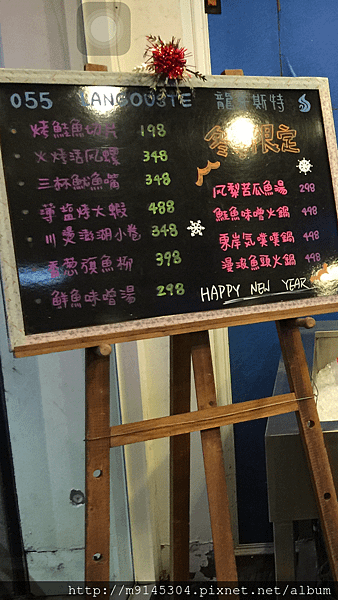 055 LANGOUSTE 龍 斯特
烤鮭魚切片 198
火烤活鳳螺 348
三杯魷魚嘴 348
薄鹽烤大蝦 488
川燙澎湖小卷 348
青蔥頂魚柳 398
鮮魚味噌湯 298
冬 限定
鳳梨苦瓜魚湯 298
鮭魚味噌火鍋 498
東岸氣噗噗鍋 498
漫波魚頭火鍋 498
HAPPY NEW YEAR
http://m9145304.pixnet.net/album